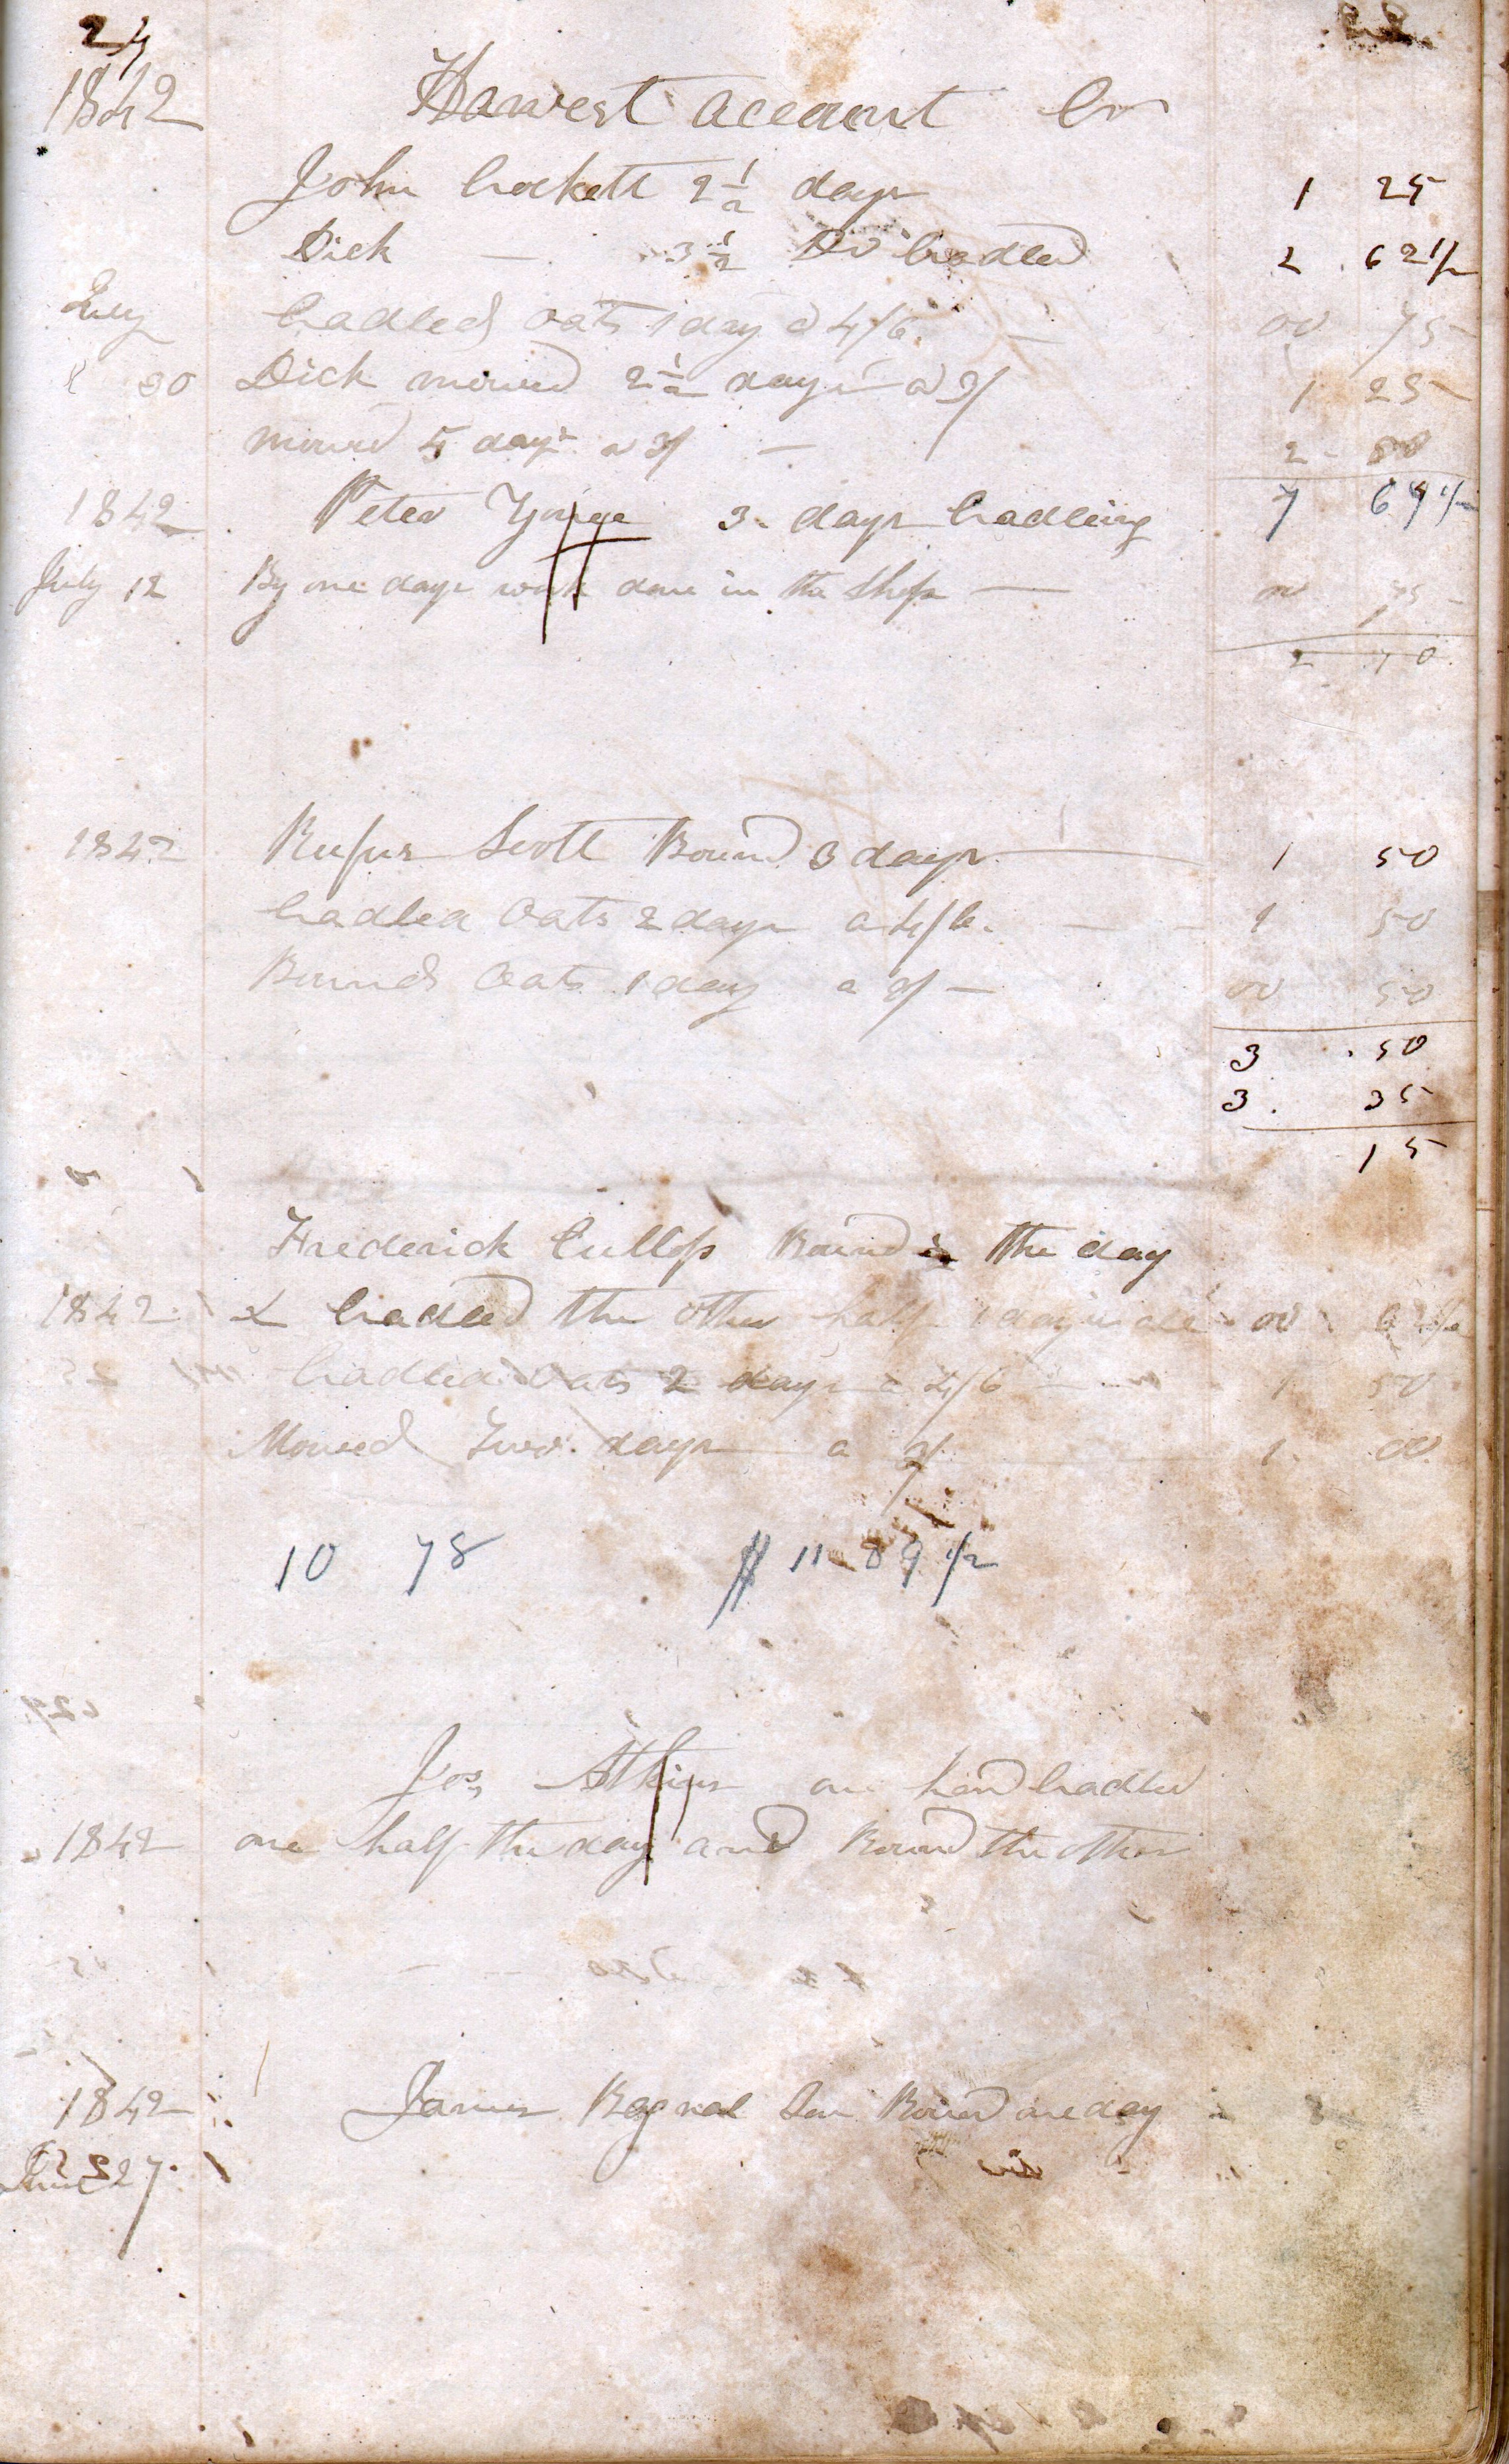 24
1842 Harvest account Cr
John Crockett 2 1/2 days 1 25
Dick — 3 1/2 Do Cradled 2 62 1/2
July Cradled oats 1 day a 4/6 — 00 75
30 Dick mowed 2 1/2 days a 3/ 1 25
mowed 5 days a 3/ — 2 50
1842 Peter 3 days Cradleing 7
July 12 By one days work done in the Shop — 00 75
2 70
1842 Rufus Scott Bound 3 days 1 50
Cradled Oats 2 days a 4/6. — 1 50
Bound Oats 1 day a 3/ — 00 50
3 50
3 35
15
Frederick Cullop Bound the day
1842 & Cradled the other half 1 day 00 62 1/2
Cradled Oats 2 days a 4/6 — 1 50
Mowed Two days a 3/ 1 00
10 78 $ 11 89 1/2
Jos Atkins Cradled
1842 one half the day and Bound the other
1842 James Bound one day
June 27